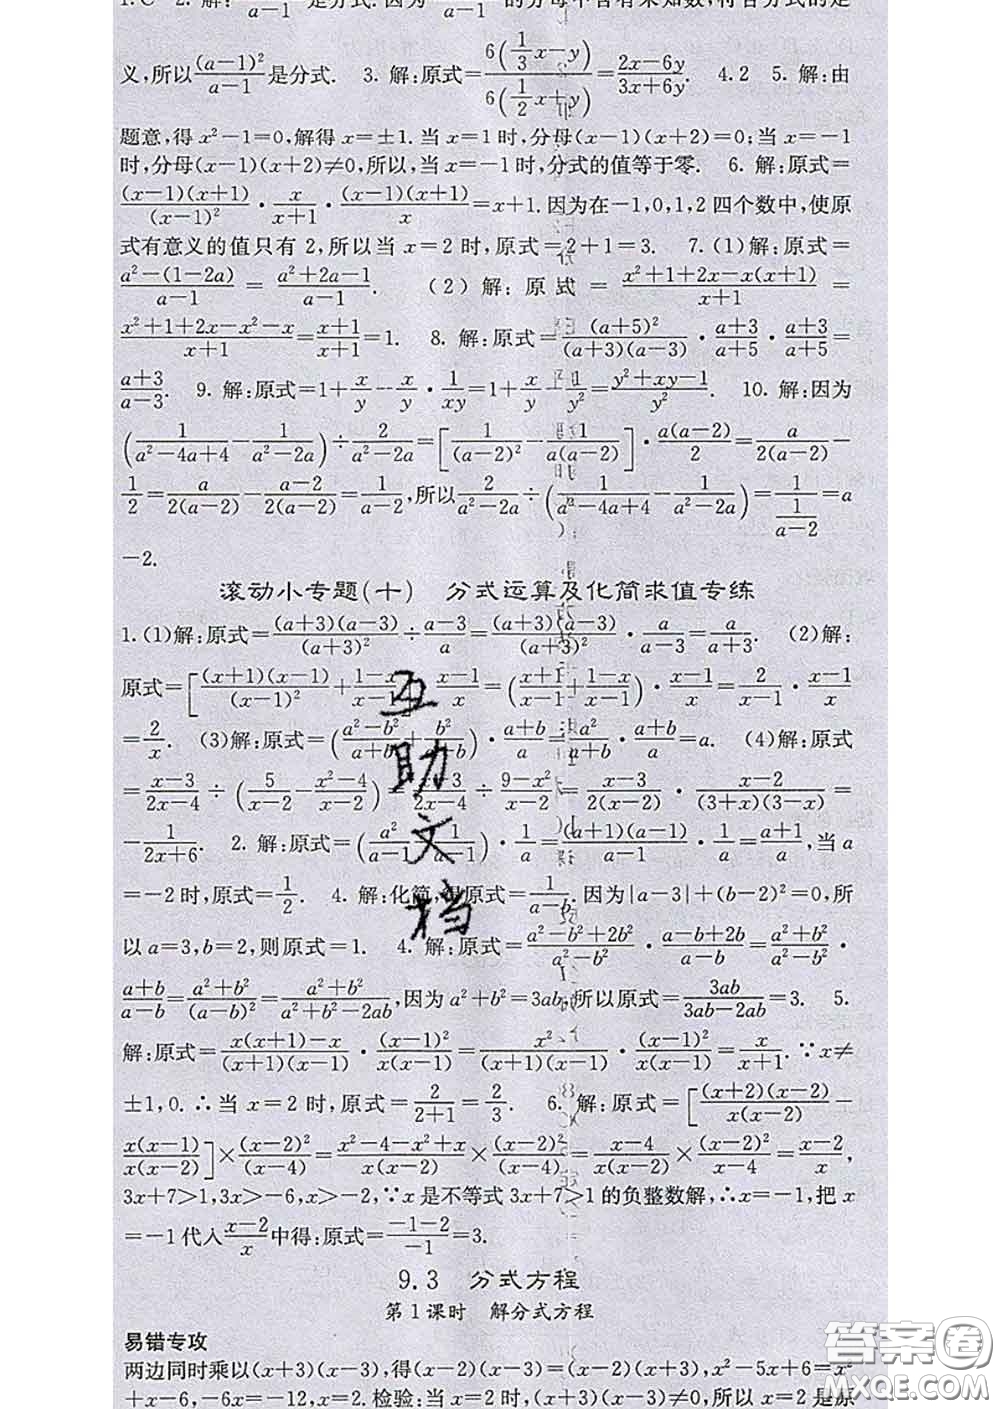 a-1 是分式.因为 a-1 的分母中含有未知数,符合分式的定
义,所以\frac{(a-1)^2}{a-1}是分式. 3. 解:原式=\frac{6(\frac{1}{3}x-y)}{6(\frac{1}{2}x+y)}=\frac{2x-6y}{3x+6y}. 4.2 5. 解:由
题意,得 x²-1=0,解得 x=±1.当 x=1 时,分母(x-1)(x+2)=0;当 x=-1
时,分母(x-1)(x+2)≠0,所以,当 x=-1 时,分式的值等于零. 6. 解:原式=
\frac{(x-1)(x+1)}{(x-1)^2}·\frac{x}{x+1}·\frac{(x-1)(x+1)}{x}=x+1.因为在-1,0,1,2 四个数中,使原
式有意义的值只有 2,所以当 x=2 时,原式=2+1=3. 7.(1)解:原式=
\frac{a²-(1-2a)}{a-1}=\frac{a²+2a-1}{a-1}. (2)解:原式=\frac{x²+1+2x-x(x+1)}{x+1}=
\frac{x²+1+2x-x²-x}{x+1}=\frac{x+1}{x+1}=1. 8. 解:原式=\frac{(a+5)²}{(a+3)(a-3)}·\frac{a+3}{a+5}·\frac{a+3}{a+5}=
\frac{a+3}{a-3}. 9. 解:原式=1+\frac{x}{y}-\frac{x}{y}·\frac{1}{xy}=1+\frac{x}{y}-\frac{1}{y²}=\frac{y²+xy-1}{y²}. 10. 解:因为
(\frac{1}{a²-4a+4}-\frac{1}{a²-2a})÷\frac{2}{a²-2a}=[\frac{1}{(a-2)²}-\frac{1}{a(a-2)}]·\frac{a(a-2)}{2}=\frac{a}{2(a-2)}-
\frac{1}{2}=\frac{a}{2(a-2)}-\frac{a-2}{2(a-2)}=\frac{1}{a-2},所以\frac{2}{a²-2a}÷(\frac{1}{a²-4a+4}-\frac{1}{a²-2a})=\frac{1}{\frac{1}{a-2}}=a
-2.
滚动小专题(十) 分式运算及化简求值专练
1.(1)解:原式=\frac{(a+3)(a-3)}{(a+3)²}÷\frac{a-3}{a}=\frac{(a+3)(a-3)}{(a+3)²}·\frac{a}{a-3}=\frac{a}{a+3}. (2)解:
原式=[\frac{(x+1)(x-1)}{(x-1)²}+\frac{1-x}{x-1}]·\frac{x-1}{x}=(\frac{x+1}{x-1}+\frac{1-x}{x-1})·\frac{x-1}{x}=\frac{2}{x-1}·\frac{x-1}{x}
=\frac{2}{x}. (3)解:原式=(\frac{a²-b²}{a+b}+\frac{b²}{a+b})·\frac{a+b}{a}=\frac{a²}{a+b}·\frac{a+b}{a}=a. (4)解:原式
=\frac{x-3}{2x-4}÷(\frac{5}{x-2}-\frac{x²-4}{x-2})=\frac{x-3}{2x-4}÷\frac{9-x²}{x-2}=\frac{x-3}{2(x-2)}·\frac{x-2}{(3+x)(3-x)}=
-\frac{1}{2x+6}. 2. 解:原式=(\frac{a²}{a-1}-\frac{1}{a-1})·\frac{1}{a}=\frac{(a+1)(a-1)}{a-1}·\frac{1}{a}=\frac{a+1}{a},当 a
=-2 时,原式=\frac{1}{2}. 4. 解:化简,得原式=\frac{1}{a-b}.因为|a-3|+(b-2)²=0,所
以 a=3,b=2,则原式=1. 4. 解:原式=\frac{a²-b²+2b²}{a²-b²}·\frac{a-b+2b}{a-b}=\frac{a²+b²}{a²-b²}·
\frac{a+b}{a-b}=\frac{a²+b²}{(a-b)²}=\frac{a²+b²}{a²+b²-2ab},因为 a²+b²=3ab,所以原式=\frac{3ab}{3ab-2ab}=3. 5.
解:原式=\frac{x(x+1)-x}{(x+1)(x-1)}·\frac{(x-1)²}{x(x-1)}=\frac{x²}{(x+1)(x-1)}·\frac{(x-1)²}{x(x-1)}=\frac{x}{x+1}.∵x≠
±1,0.∴当 x=2 时,原式=\frac{2}{2+1}=\frac{2}{3}. 6. 解:原式=[\frac{(x+2)(x-2)}{x(x-2)}-
\frac{x(x-1)}{x(x-2)}]×\frac{(x-2)²}{(x-4)}=\frac{x²-4-x²+x}{x(x-2)}×\frac{(x-2)²}{(x-4)}=\frac{x-4}{x(x-2)}×\frac{(x-2)²}{x-4}=\frac{x-2}{x},
3x+7>1,3x>-6,x>-2,∵x 是不等式 3x+7>1 的负整数解,∴x=-1,把 x
=-1 代入\frac{x-2}{x}中得:原式=\frac{-1-2}{-1}=3.
9.3 分式方程
第 1 课时 解分式方程
易错专攻
两边同时乘以(x+3)(x-3),得(x-2)(x-3)=(x-2)(x+3),x²-5x+6=x²
+x-6,-6x=-12,x=2.检验:当 x=2 时,(x+3)(x-3)≠0,所以 x=2 是原
互助文档
答案圈
MXQE.COM